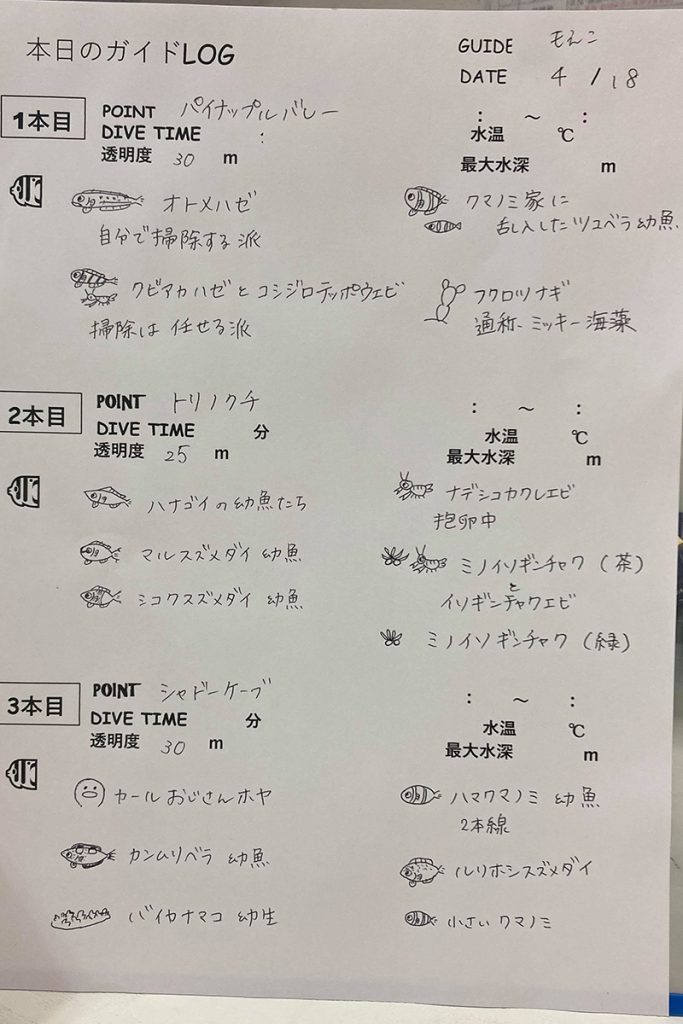 本日のガイドLOG
GUIDE もんこ
DATE 4 / 18
1本目
POINT パイナップルバレー
DIVE TIME :
透明度 30 m
: ～ :
水温 ℃
最大水深 m
オトメハゼ
自分で掃除する派
クビアカハゼとコシジロテッポウエビ
掃除は任せる派
クマノミ家に
乱入したツユベラ幼魚
フクロツナギ
通称ミッキー海藻
2本目
POINT トリノクチ
DIVE TIME 分
透明度 25 m
: ～ :
水温 ℃
最大水深 m
ハナゴイの幼魚たち
マルスズメダイ 幼魚
シコクスズメダイ 幼魚
ナデシコカクレエビ
抱卵中
ミノイソギンチャク (茶)
と
イソギンチャクエビ
ミノイソギンチャク (緑)
3本目
POINT シャドーケーブ
DIVE TIME 分
透明度 30 m
: ～ :
水温 ℃
最大水深 m
カールおじさんホヤ
カンムリベラ 幼魚
バイカナマコ 幼生
ハマクマノミ 幼魚
2本線
ルリホシスズメダイ
小さいクマノミ